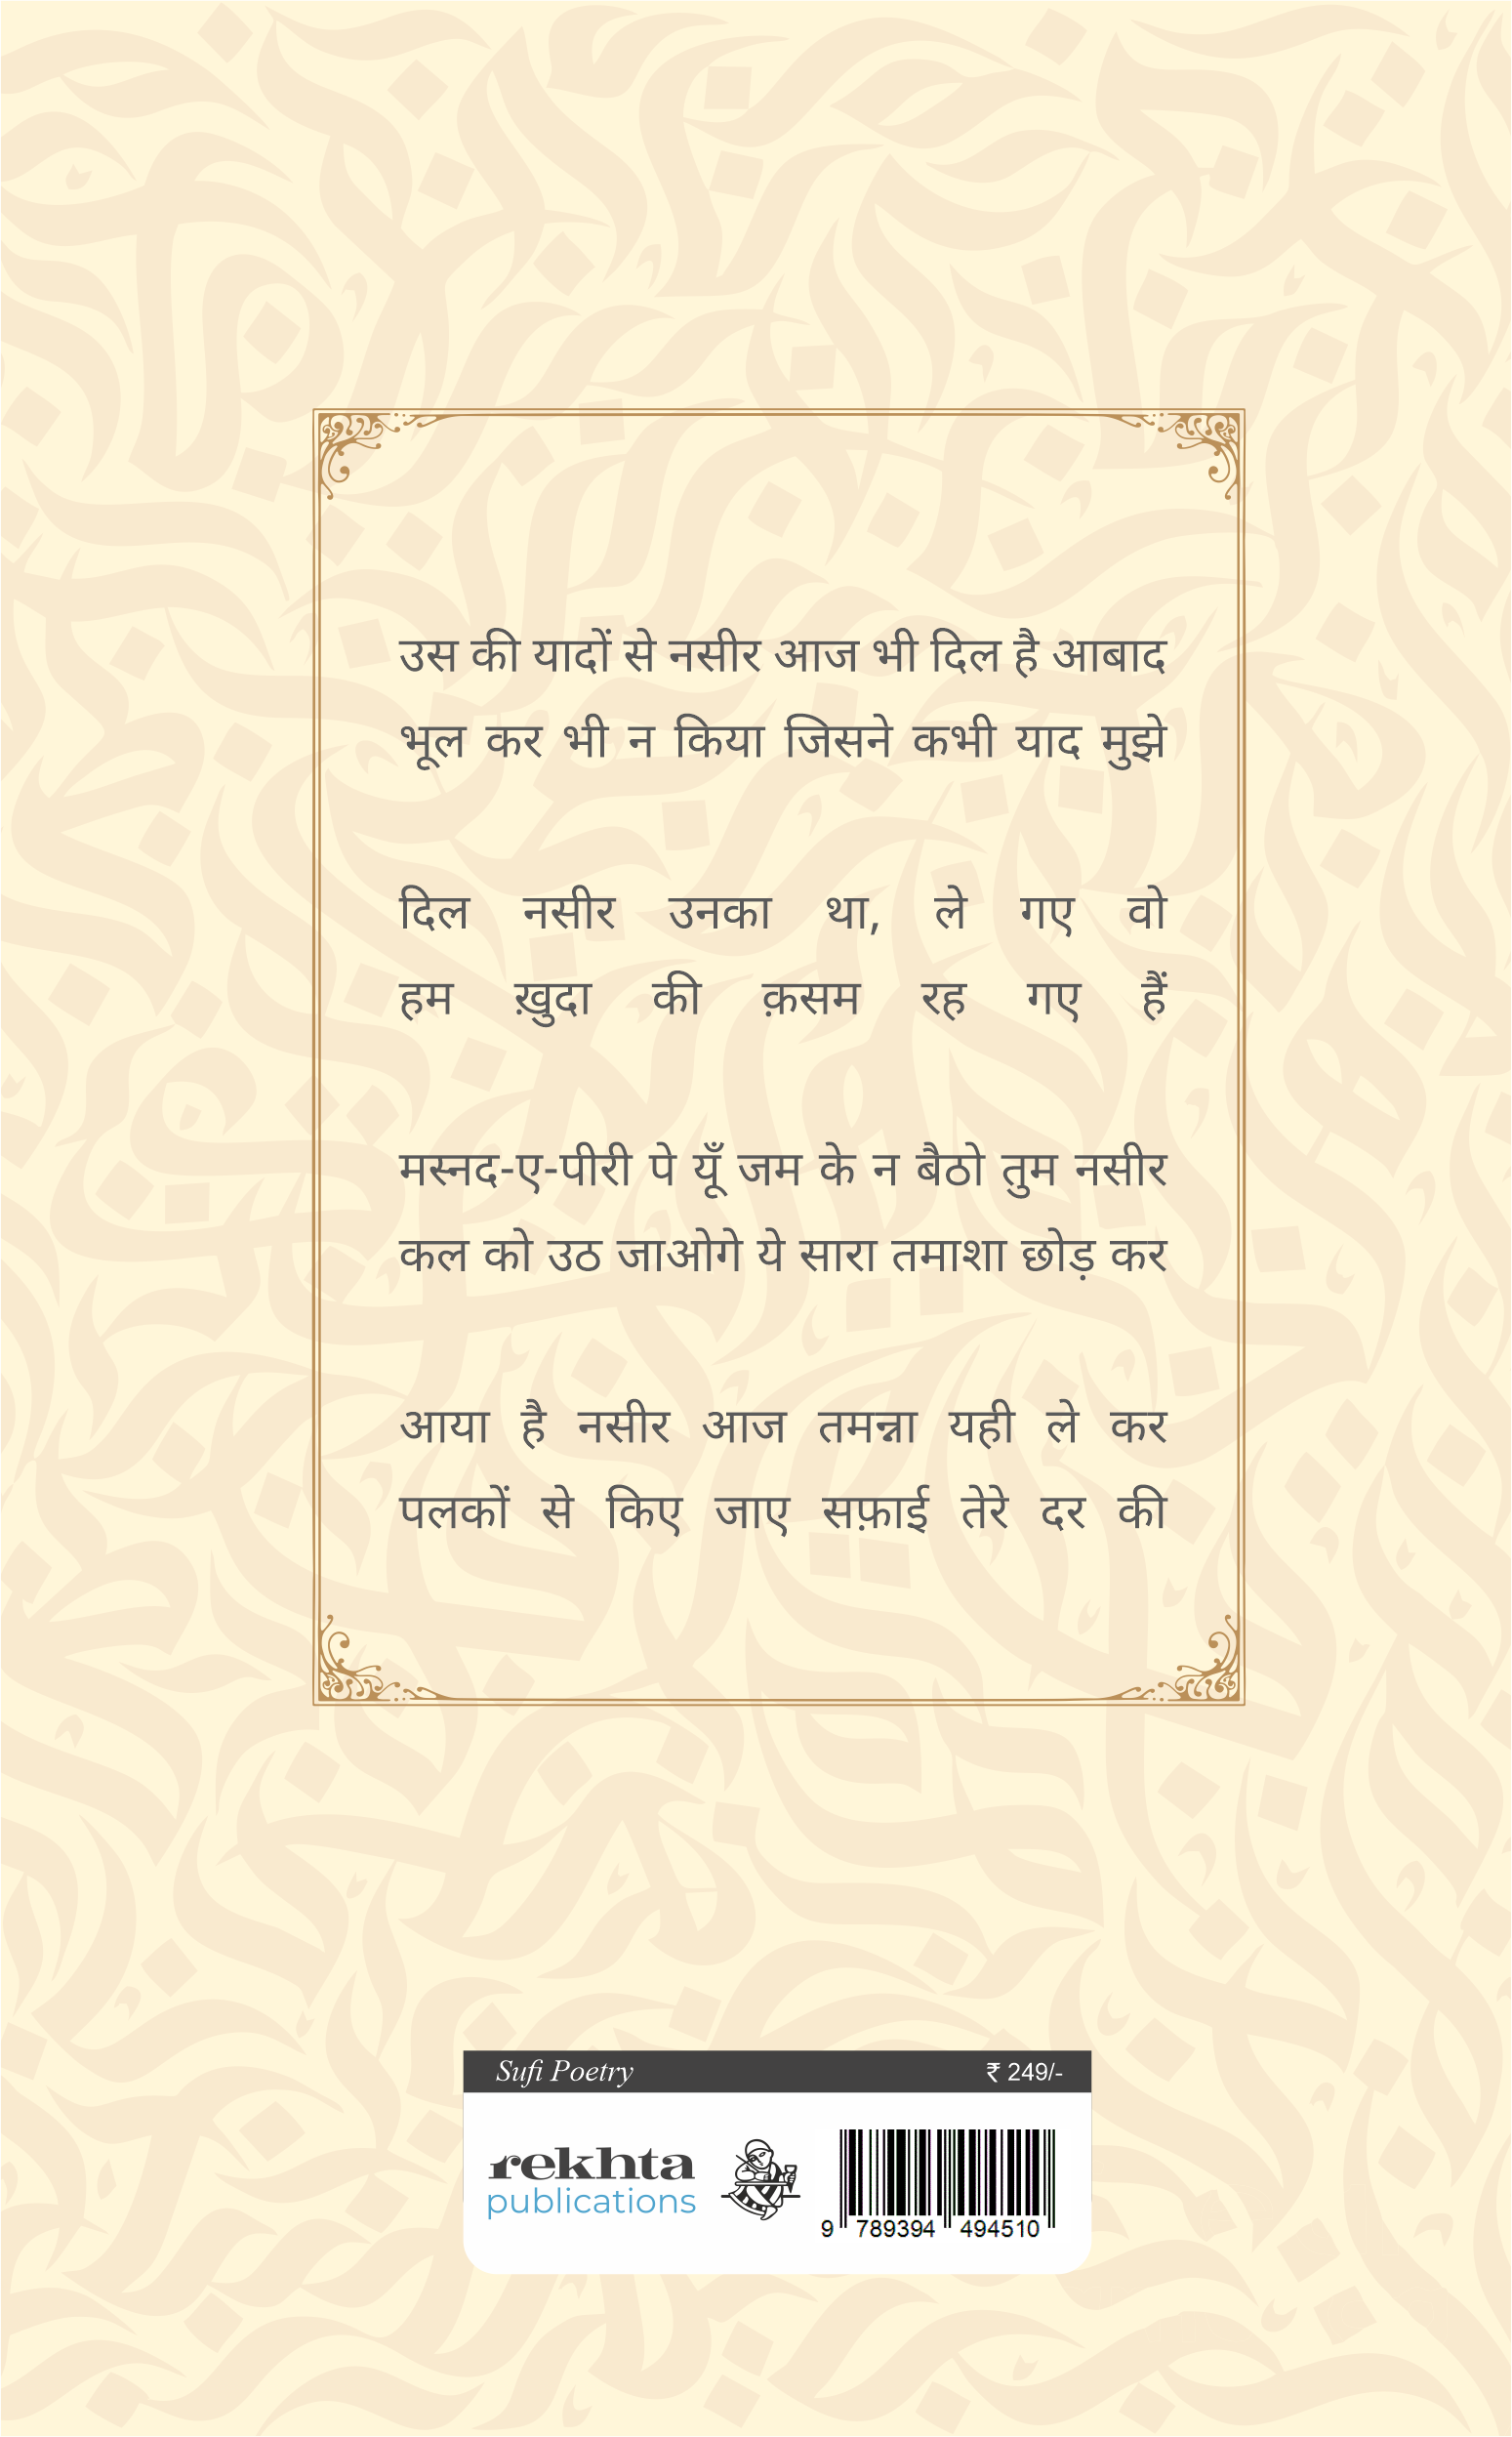 उस की यादों से नसीर आज भी दिल है आबाद
भूल कर भी न किया जिसने कभी याद मुझे
दिल नसीर उनका था, ले गए वो
हम ख़ुदा की क़सम रह गए हैं
मस्नद-ए-पीरी पे यूँ जम के न बैठो तुम नसीर
कल को उठ जाओगे ये सारा तमाशा छोड़ कर
आया है नसीर आज तमन्ना यही ले कर
पलकों से किए जाए सफ़ाई तेरे दर की
Sufi Poetry ₹ 249/-
rekhta
publications
9 789394 494510